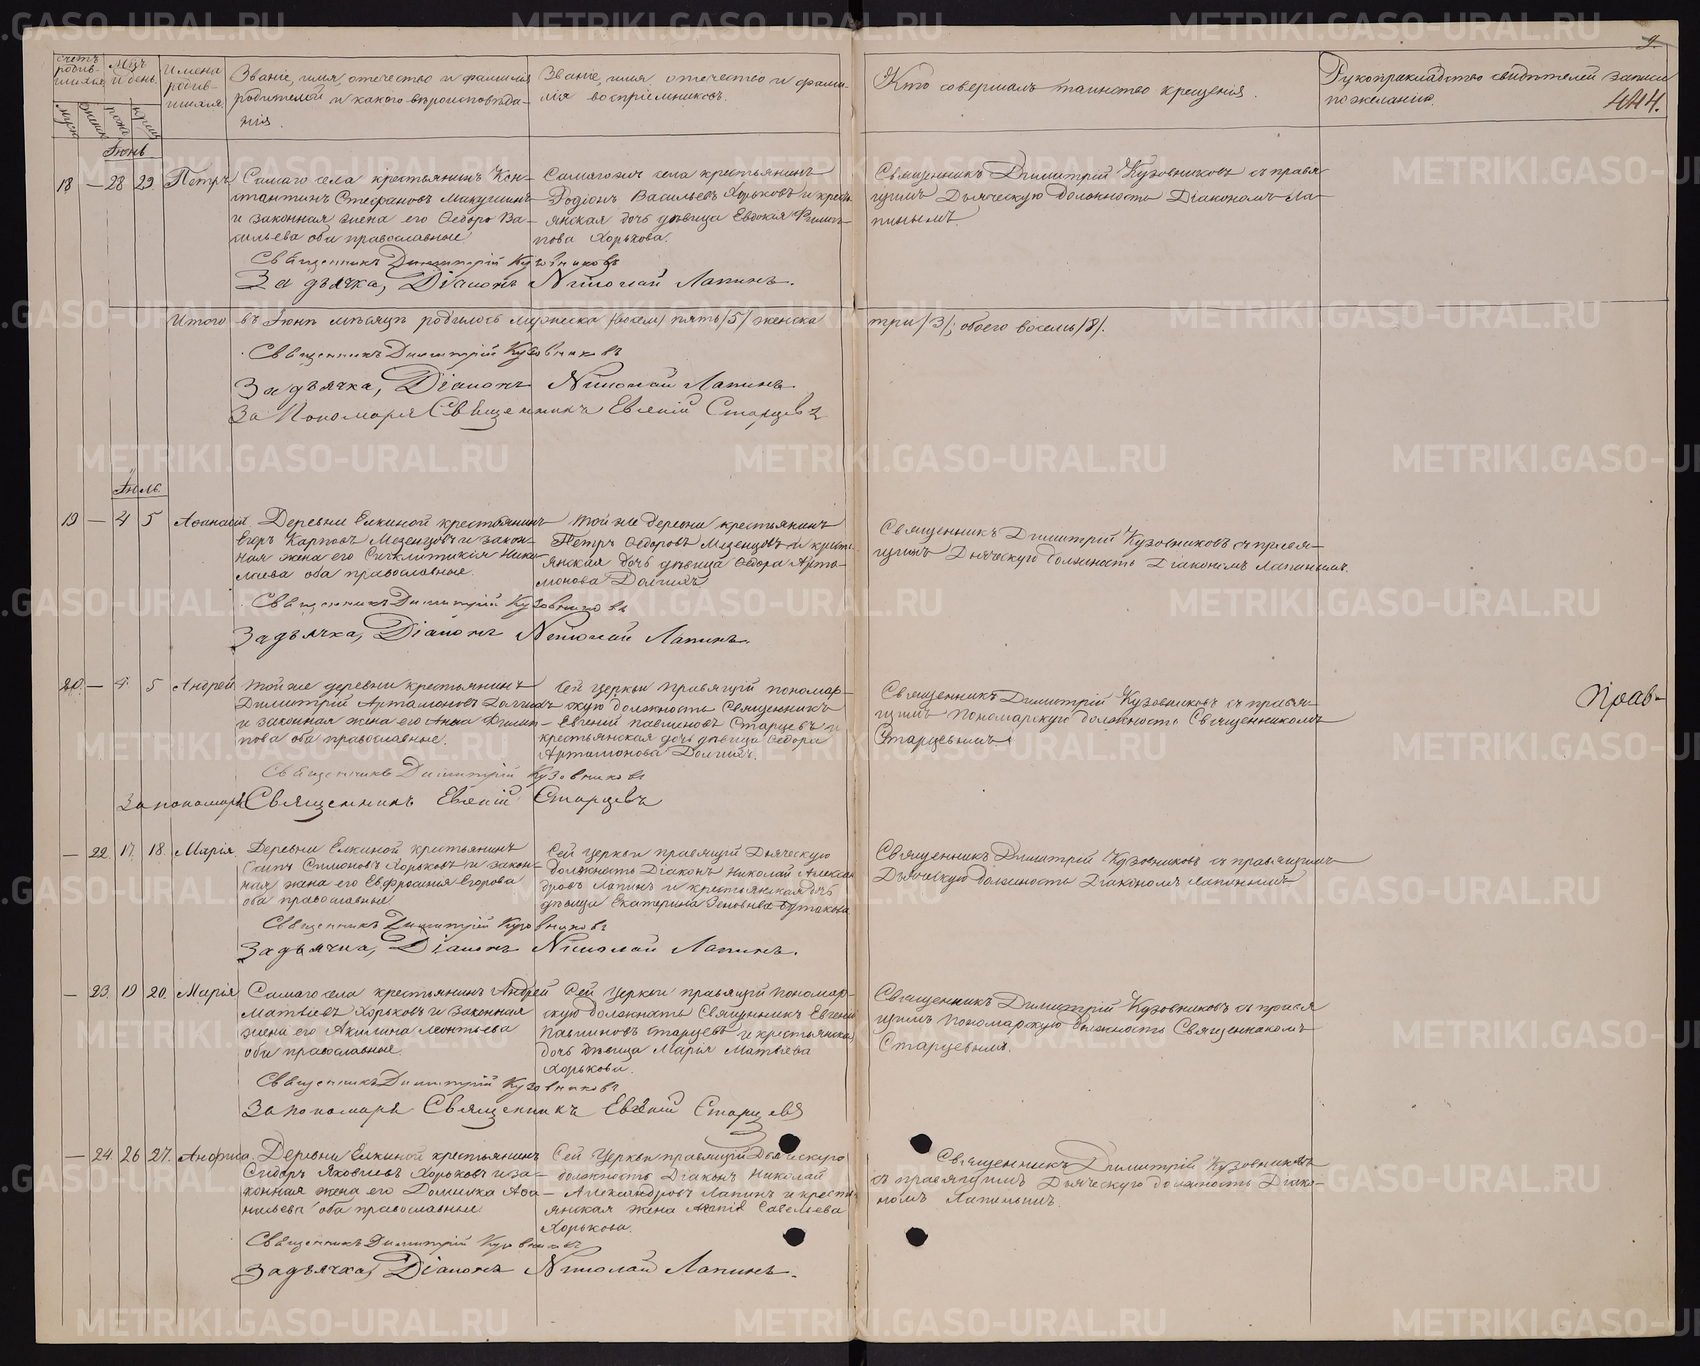 9.
444.
Счетъ родив-шихся
Мѣц. и день.
Имена родив-шихся
Званіе, имя, отчество и фамилія
родителей и какого вѣроисповѣда-
нія.
Званіе, имя отчество и фами-
лія воспріемниковъ.
Кто совершалъ таинство крещенія.
Рукоприкладство свидѣтелей записи
по желанію.
Іюнь
18 — 28 29 Петръ
Самаго села крестьянинъ Кон-
стантинъ Стефановъ Макушинъ
и законная жена его Ѳедора Ва-
сильева оба православные.
Самаго села крестьянинъ
Родіонъ Васильевъ Хорьковъ и кресть-
янская дочь дѣвица Евдокія Филип-
пова Хорькова.
Священникъ Димитрій Кузовниковъ съ правя-
щимъ Дьяческую должность Діакономъ Ла-
пинымъ.
Священникъ Димитрій Кузовниковъ
За дьячка, Діаконъ Николай Лапинъ.
Итого въ Іюнѣ мѣсяцѣ родилось мужеска (восем) пять /5/ женска три /3/, обоего восемь /8/.
Священникъ Димитрій Кузовниковъ
За дьячка, Діаконъ Николай Лапинъ.
За Пономаря Священникъ Евгеній Старцевъ
Іюль.
19 — 4 5 Аѳанасій
Деревни Елкиной крестьянинъ
Егоръ Карповъ Мезенцовъ и закон-
ная жена его Сигклитикія Нико-
лаева оба православные.
Той же деревни крестьянинъ
Петръ Ѳедоровъ Мезенцовъ и кресть-
янская дочь дѣвица Ѳедора Арта-
монова Долгихъ
Священникъ Димитрій Кузовниковъ съ правя-
щимъ Дьяческую должность Діакономъ Лапинымъ.
Священникъ Димитрій Кузовниковъ
За дьячка, Діаконъ Николай Лапинъ.
20. — 4. 5 Андрей
Той же деревни крестьянинъ
Димитрій Артамоновъ Долгихъ
и законная жена его Анна Филип-
пова оба православные.
Сей церкви правящій пономар-
скую должность Священникъ
Евгеній Павлиновъ Старцевъ и
крестьянская дочь дѣвица Ѳедора
Артамонова Долгихъ.
Священникъ Димитрій Кузовниковъ съ правя-
щимъ Пономарскую должность Священникомъ
Старцевымъ.
Прав-
Священникъ Димитрій Кузовниковъ
За пономаря Священникъ Евгеній Старцевъ
— 22. 17. 18. Марія.
Деревни Елкиной крестьянинъ
Симоновъ Хорьковъ и закон-
ная жена его Евфросинія Егорова
оба православные
Сей церкви правящій Дьяческую
должность Діаконъ Николай Алексан-
дровъ Лапинъ и крестьянская дочь
дѣвица Екатерина Бутакова
Священникъ Димитрій Кузовниковъ съ правящимъ
Дьяческую должность Діакономъ Лапинымъ
Священникъ Димитрій Кузовниковъ
За дьячка, Діаконъ Николай Лапинъ.
— 23. 19 20. Марія
Самаго села крестьянинъ Андрей
Матвѣевъ Хорьковъ и законная
жена его Акилина Леонтьева
оба православные.
Сей церкви правящій пономар-
скую должность Священникъ Евгеній
Павлиновъ Старцевъ и крестьянская
дочь дѣвица Марія Матвѣева
Хорькова.
Священникъ Димитрій Кузовниковъ съ правя
щимъ Пономарскую должность Священникомъ
Старцевымъ.
Священникъ Димитрій Кузовниковъ
За пономаря Священникъ Евгеній Старцевъ
— 24 26 27. Анфиса
Деревни Елкиной крестьянинъ
Сидоръ Яковлевъ Хорьковъ и за-
конная жена его Домника Аѳа-
насьева оба православные
Сей церкви правящій Дьяческую
должность Діаконъ Николай
Александровъ Лапинъ и кресть-
янская жена Агапія Савельева
Хорькова.
Священникъ Димитрій Кузовниковъ
съ правящимъ Дьяческую должность Діако-
номъ Лапинымъ.
Священникъ Димитрій Кузовниковъ
За дьячка, Діаконъ Николай Лапинъ.
METRIKI.GASO-URAL.RU